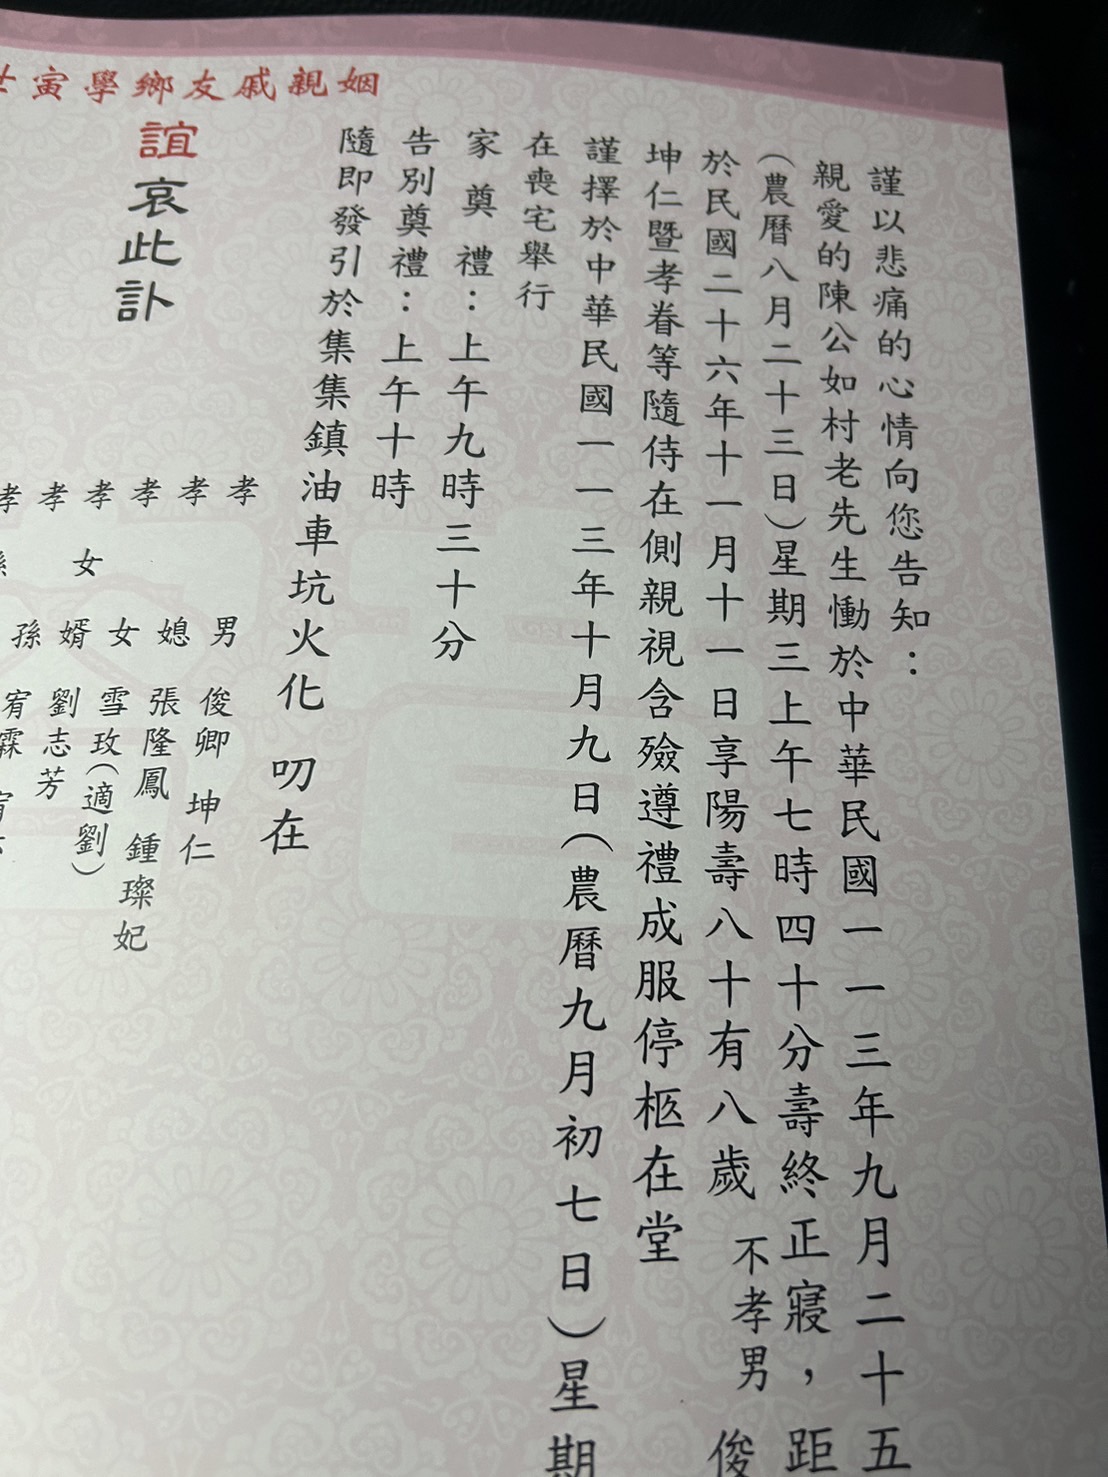 謹以悲痛的心情向您告知：
親愛的陳公如村老先生慟於中華民國一一三年九月二十五
（農曆八月二十三日）星期三上午七時四十分壽終正寢，距
於民國二十六年十一月十一日享陽壽八十有八歲 不孝男 俊
坤仁暨孝眷等隨侍在側親視含殮遵禮成服停柩在堂
謹擇於中華民國一一三年十月九日（農曆九月初七日）星期
在喪宅舉行
家奠禮：上午九時三十分
告別奠禮：上午十時
隨即發引於集集鎮油車坑火化 叨在
姻親戚友鄉學寅
誼哀此訃
孝男 俊卿 坤仁
孝媳 張隆鳳 鍾璨妃
孝女 雪玫（適劉）
孝女婿 劉志芳
孝孫 宥霖
孝